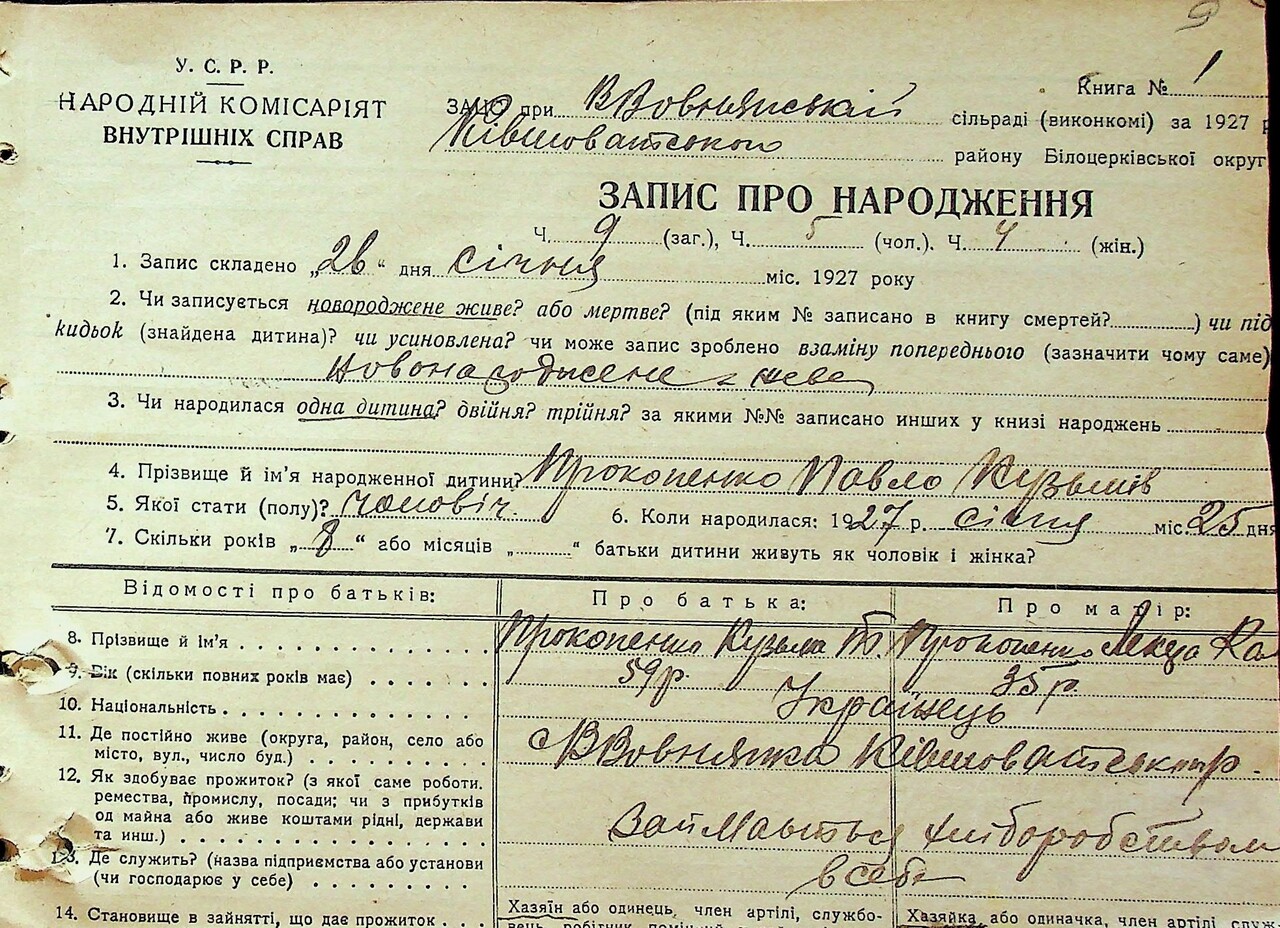 У. С. Р. Р.
НАРОДНІЙ КОМІСАРІЯТ
ВНУТРІШНІХ СПРАВ
Книга № 1
ЗАЦС при ВВовнянській сільраді (виконкомі) за 1927 р
Ківшоватського району Білоцерківської округ
ЗАПИС ПРО НАРОДЖЕННЯ
Ч. 9 (заг.), Ч. 5 (чол.). Ч. 4 (жін.)
1. Запис складено „26“ дня січня міс. 1927 року
2. Чи записується новороджене живе? або мертве? (під яким № записано в книгу смертей?) чи під
кидьок (знайдена дитина)? чи усиновлена? чи може запис зроблено взаміну попереднього (зазначити чому саме)
3. Чи народилася одна дитина? двійня? трійня? за якими №№ записано инших у книзі народжень
4. Прізвище й ім'я народженної дитини? Прокопенко Павло Кузьмів
5. Якої стати (полу)? чоловіч. 6. Коли народилася: 1927 р. січня міс. 25 дня
7. Скільки років „8“ або місяців „ “ батьки дитини живуть як чоловік і жінка?
Відомості про батьків: Про батька: Про матір:
8. Прізвище й ім'я Прокопенко Кузьма Т. Прокопенко
9. Вік (скільки повних років має) 59р. 35р.
10. Національність Українець
11. Де постійно живе (округа, район, село або
місто, вул., число буд.) с ВВовнянка Ківшоватськ р.
12. Як здобуває прожиток? (з якої саме роботи.
ремества, промислу, посади; чи з прибутків
од майна або живе коштами рідні, держави
та инш.) Займаться хліборобством
13. Де служить? (назва підприємства або установи
(чи господарює у себе) в себе
14. Становище в зайнятті, що дає прожиток
Хазяїн або одинець, член артілі, службо-
Хазяйка, або одиначка, член артілі, служ